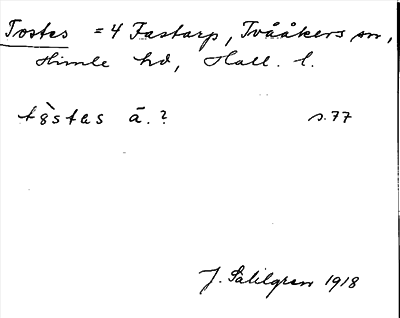 Tostes = 4 Fastarp, Tvååkers sn,
Himle hd, Hall. l.
tòstas ā.? s. 77
J. Sahlgren 1918